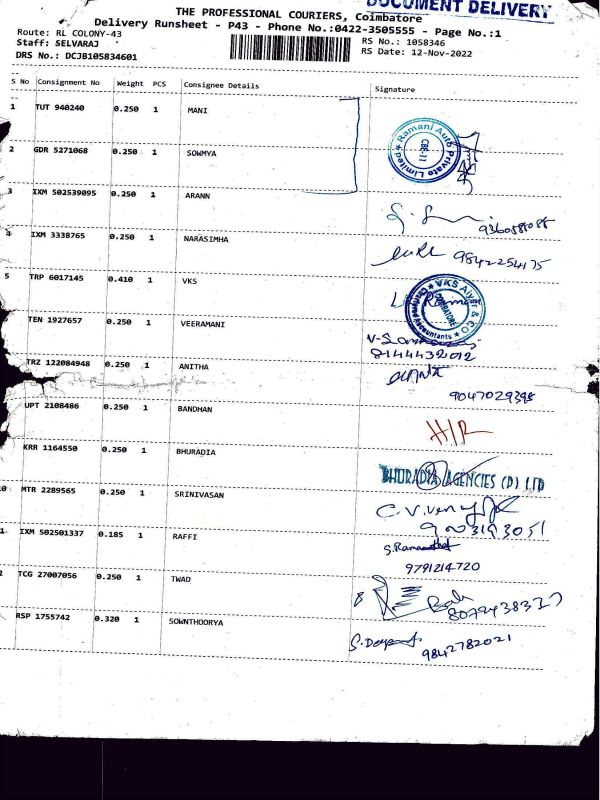 DOCUMENT DELIVERY
THE PROFESSIONAL COURIERS, Coimbatore
Delivery Runsheet - P43 - Phone No.:0422-3505555 - Page No.:1
Route: RL COLONY-43
Staff: SELVARAJ
DRS No.: DCJB105834601
RS No.: 1058346
RS Date: 12-Nov-2022
S No Consignment No Weight PCS Consignee Details Signature
1 TUT 940240 0.250 1 MANI
Ramani Auto Private Limited
CBE-11
2 GDR 5271068 0.250 1 SOWMYA
3 IXM 502539095 0.250 1 ARANN
4 IXM 3338765 0.250 1 NARASIMHA
9842254175
5 TRP 6017145 0.410 1 VKS
VKS Aiyer & CO
COIMBATORE
Chartered Accountants
TEN 1927657 0.250 1 VEERAMANI
8144432012
TRZ 122084948 0.250 1 ANITHA
9047029398
UPT 2108486 0.250 1 BANDHAN
H/R
KRR 1164550 0.250 1 BHURADIA
BHURADIA AGENCIES (P) LTD
0 MTR 2289565 0.250 1 SRINIVASAN
9003193051
1 IXM 502501337 0.185 1 RAFFI
9791214720
2 TCG 27007056 0.250 1 TWAD
RSP 1755742 0.320 1 SOWNTHOORYA
9842782021